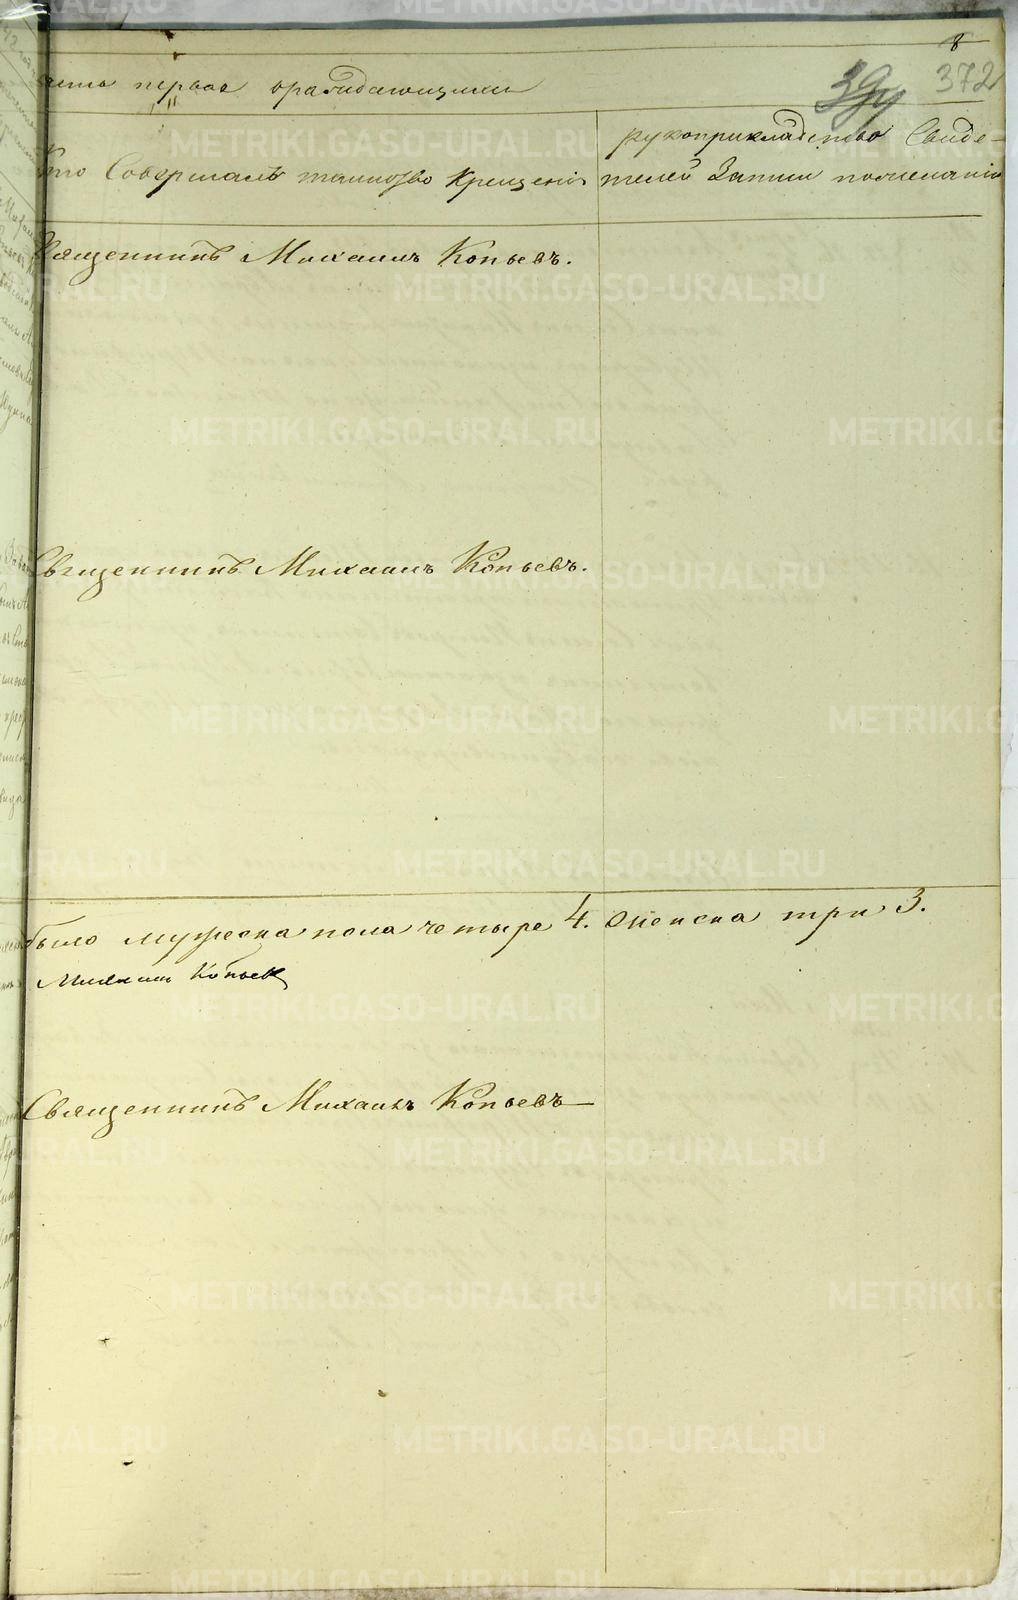 8
372
часть первая о раждающихся
Кто Совершалъ таинство Крещенія
рукоприкладство Свиде-
телей Записи по желанію
Священникъ Михаилъ Копьевъ.
Священникъ Михаилъ Копьевъ.
было мужеска пола четыре 4. женска три 3.
Михаилъ Копьевъ
Священникъ Михаилъ Копьевъ
METRIKI.GASO-URAL.RU